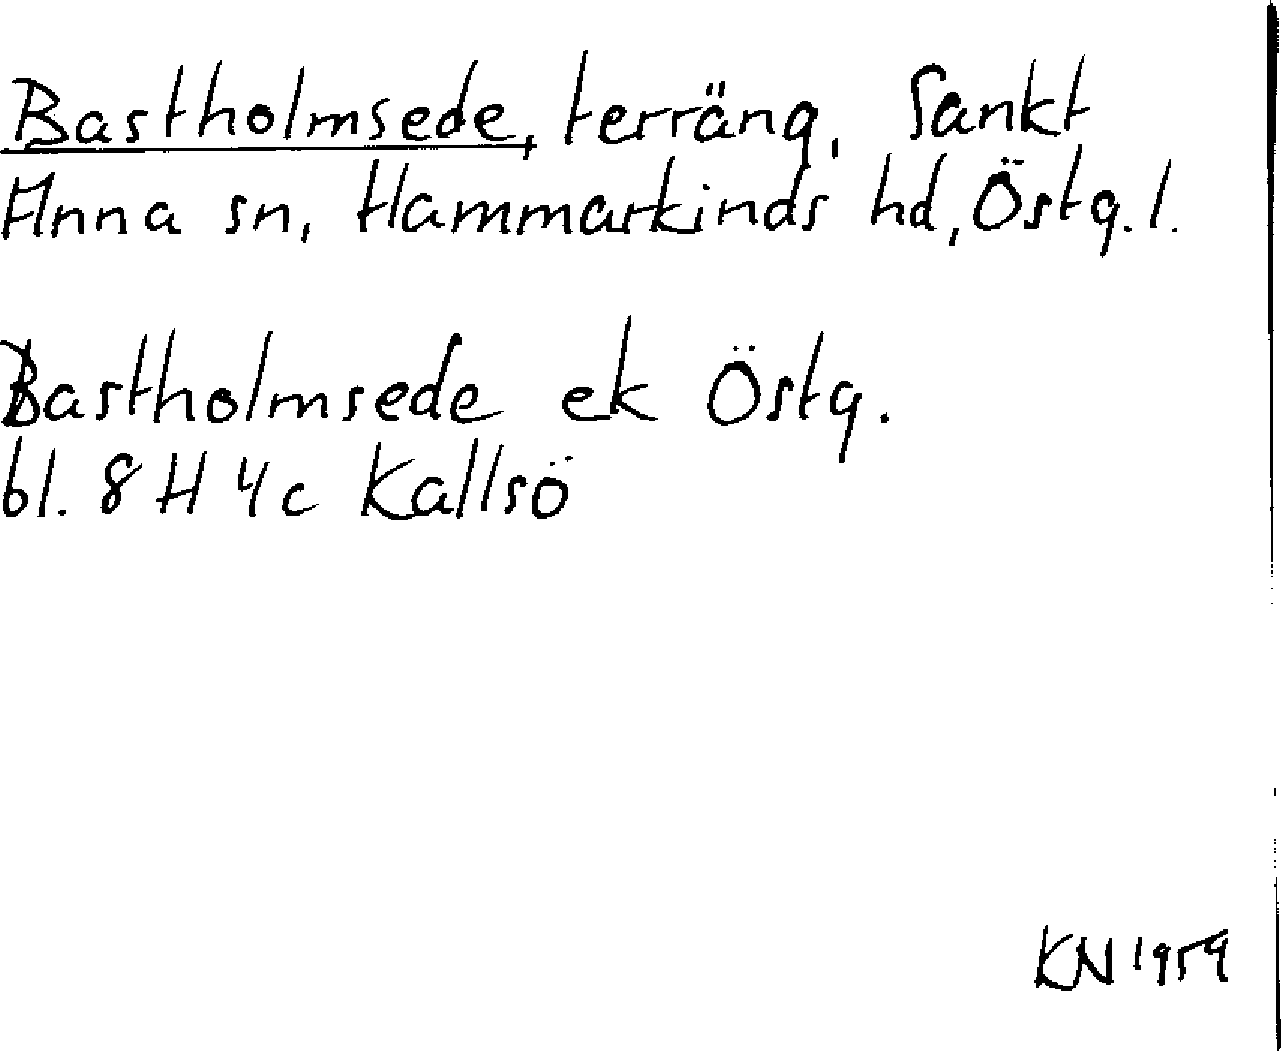 Bastholmsede, terräng, Sankt
Anna sn, Hammarkinds hd, Östg. l.
Bastholmsede ek Östg.
bl. 8 H 4c Kallsö
KN 1959